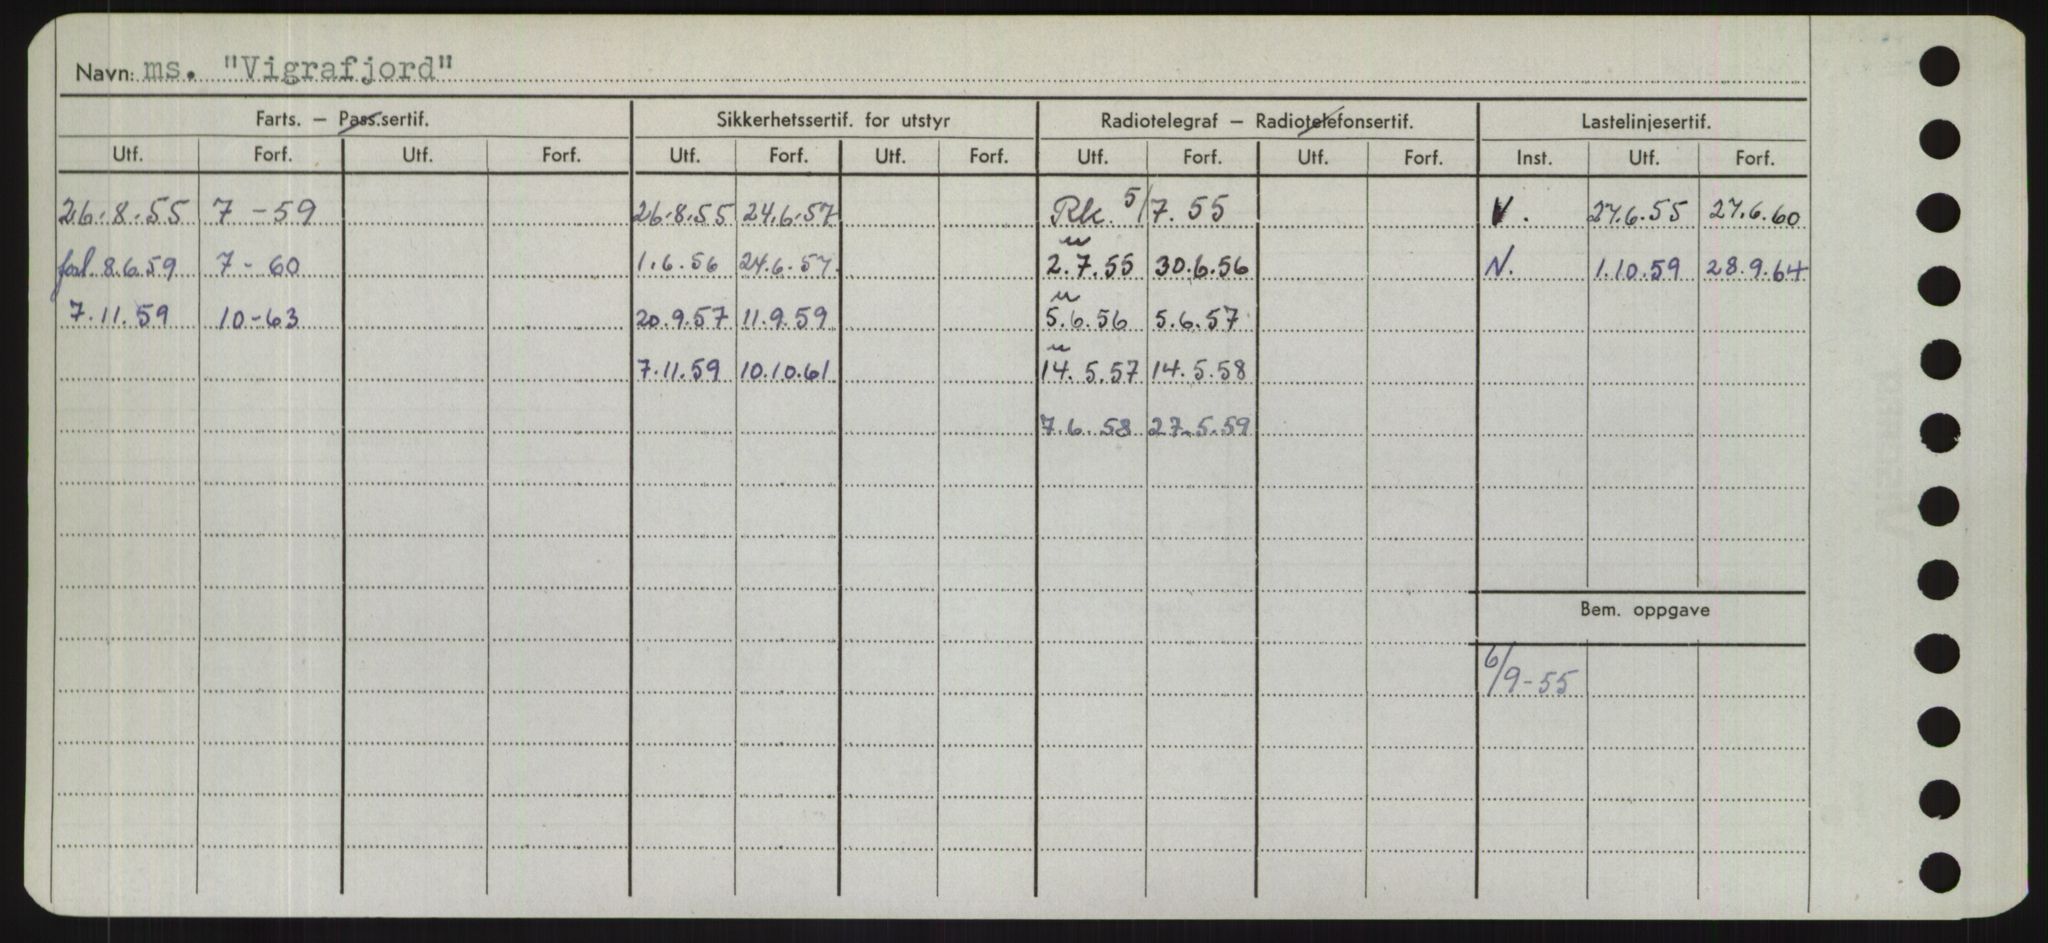 Navn: ms. "Vigrafjord"
Farts. — Pass.sertif. Sikkerhetssertif. for utstyr Radiotelegraf — Radiotelefonsertif. Lastelinjesertif.
Utf. Forf. Utf. Forf. Utf. Forf. Utf. Forf. Utf. Forf. Utf. Forf. Inst. Utf. Forf.
26.8.55 7-59 26.8.55 24.6.57 Rk. 5/7.55 V. 27.6.55 27.6.60
forl. 8.6.59 7-60 1.6.56 24.6.57 u 2.7.55 30.6.56 N. 1.10.59 28.9.64
7.11.59 10-63 20.9.57 11.9.59 u 5.6.56 5.6.57
7.11.59 10.10.61 u 14.5.57 14.5.58
7.6.58 27.5.59
Bem. oppgave
6/9-55